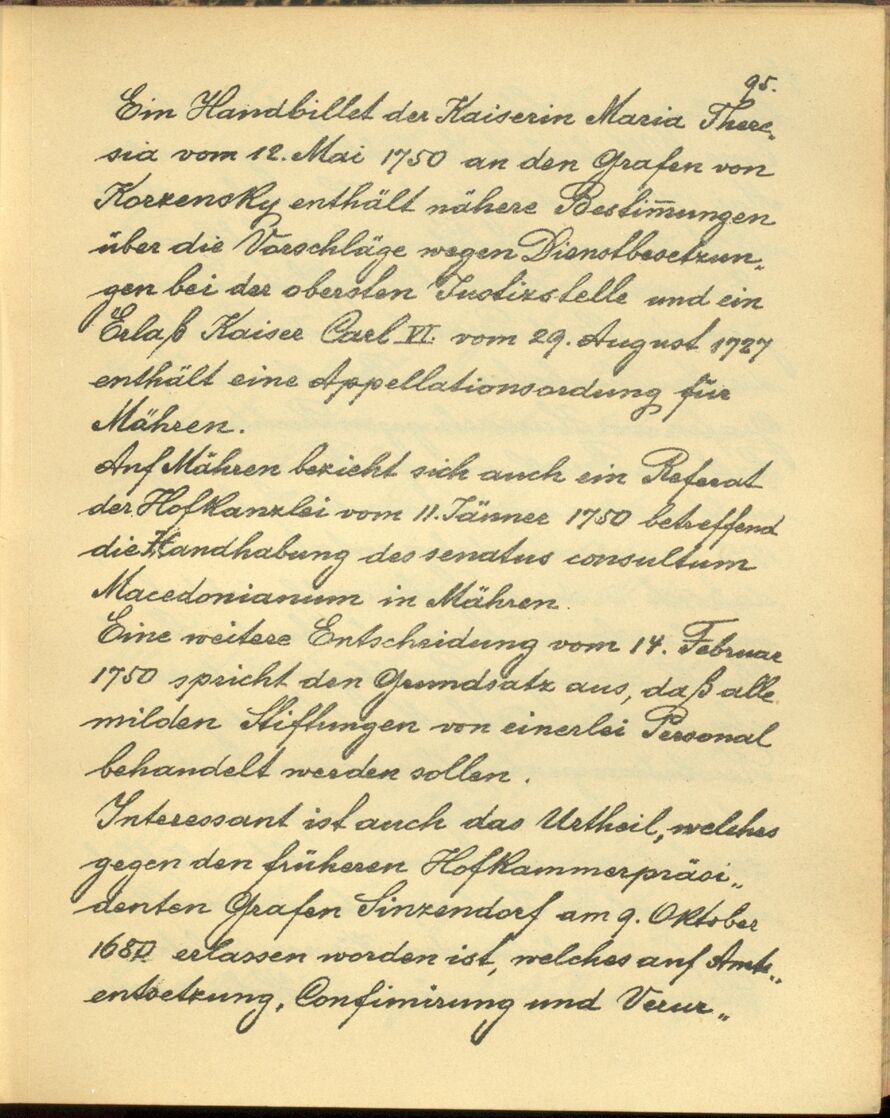 95.
Ein Handbillet der Kaiserin Maria There„
sia vom 12. Mai 1750 an den Grafen von
Korzensky enthält nähere Bestim̅ungen
über die Vorschläge wegen Dienstbesetzun„
gen bei der obersten Justizstelle und ein
Erlaß Kaiser Carl VI. vom 29. August 1727
enthält eine Appellationsordung für
Mähren.
Auf Mähren bezieht sich auch ein Referat
der Hofkanzlei vom 11. Jänner 1750 betreffend
die Handhabung des senatus consultum
Macedonianum in Mähren.
Eine weitere Entscheidung vom 14. Februar
1750 spricht den Grundsatz aus, daß alle
milden Stiftungen von einerlei Personal
behandelt werden sollen.
Interessant ist auch das Urtheil, welches
gegen den früheren Hofkammerpräsi„
denten Grafen Sinzendorf am 9. Oktober
erlassen worden ist, welches auf Amts„
entsetzung, Confimirung und Verur„